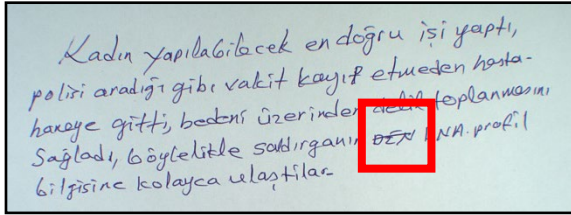 Kadın yapılabilecek en doğru işi yaptı,
polisi aradığı gibi vakit kayıp etmeden hasta-
haneye gitti, bedeni üzerinden delik toplanmasını
sağladı, böylelikle saldırganın DNA profil
bilgisine kolayca ulaştılar.